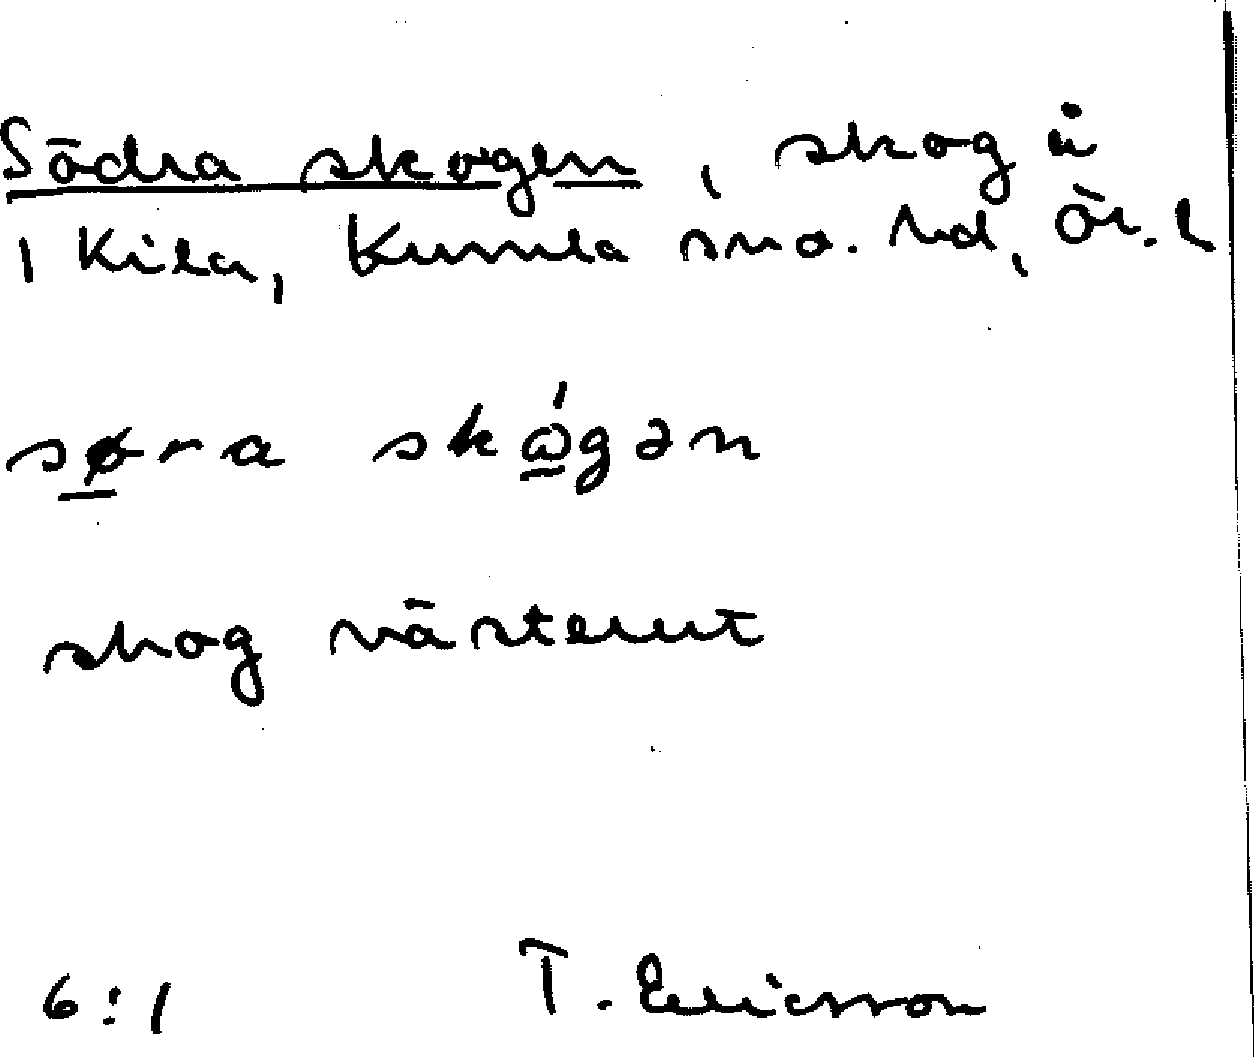 Södra skogen, skog å
1 Kila, Kumla sn o. hd, Ör. l
søra skógən
skog västerut
6:1 T. Ericsson